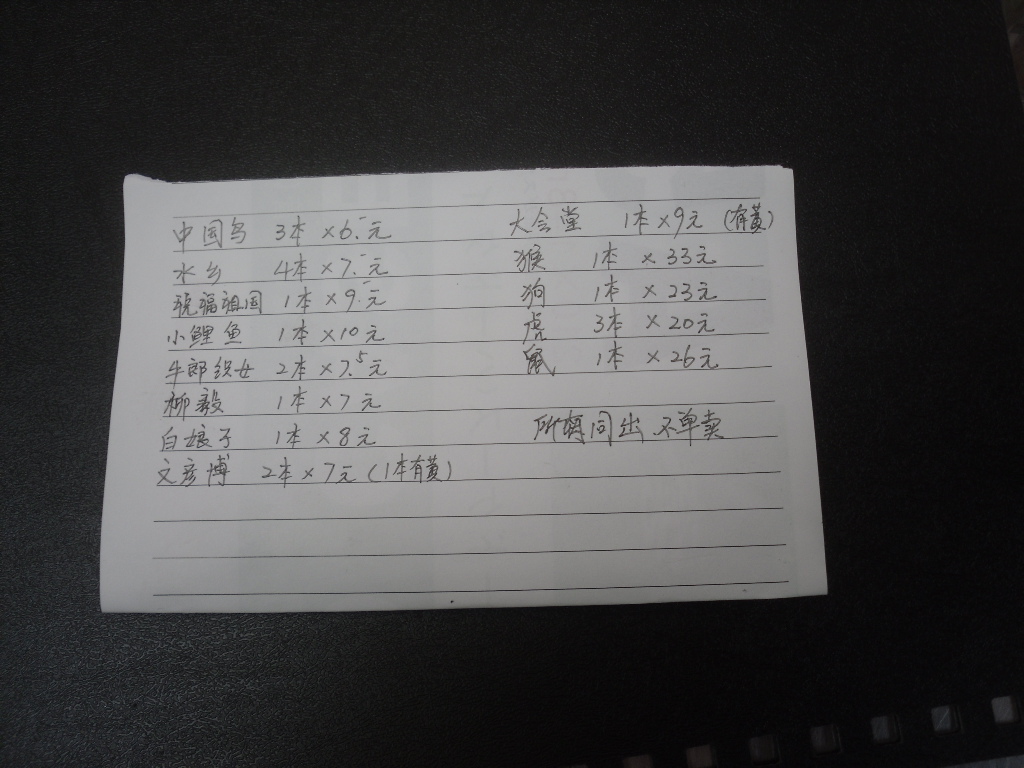 中国鸟 3本×6.-元
水乡 4本×7.-元
祝福祖国 1本×9.-元
小鲤鱼 1本×10元
牛郎织女 2本×7.5元
柳毅 1本×7元
白娘子 1本×8元
文彦博 2本×7元(1本有黄)
大会堂 1本×9元(有黄)
猴 1本×33元
狗 1本×23元
虎 3本×20元
鼠 1本×26元
同出 不单卖